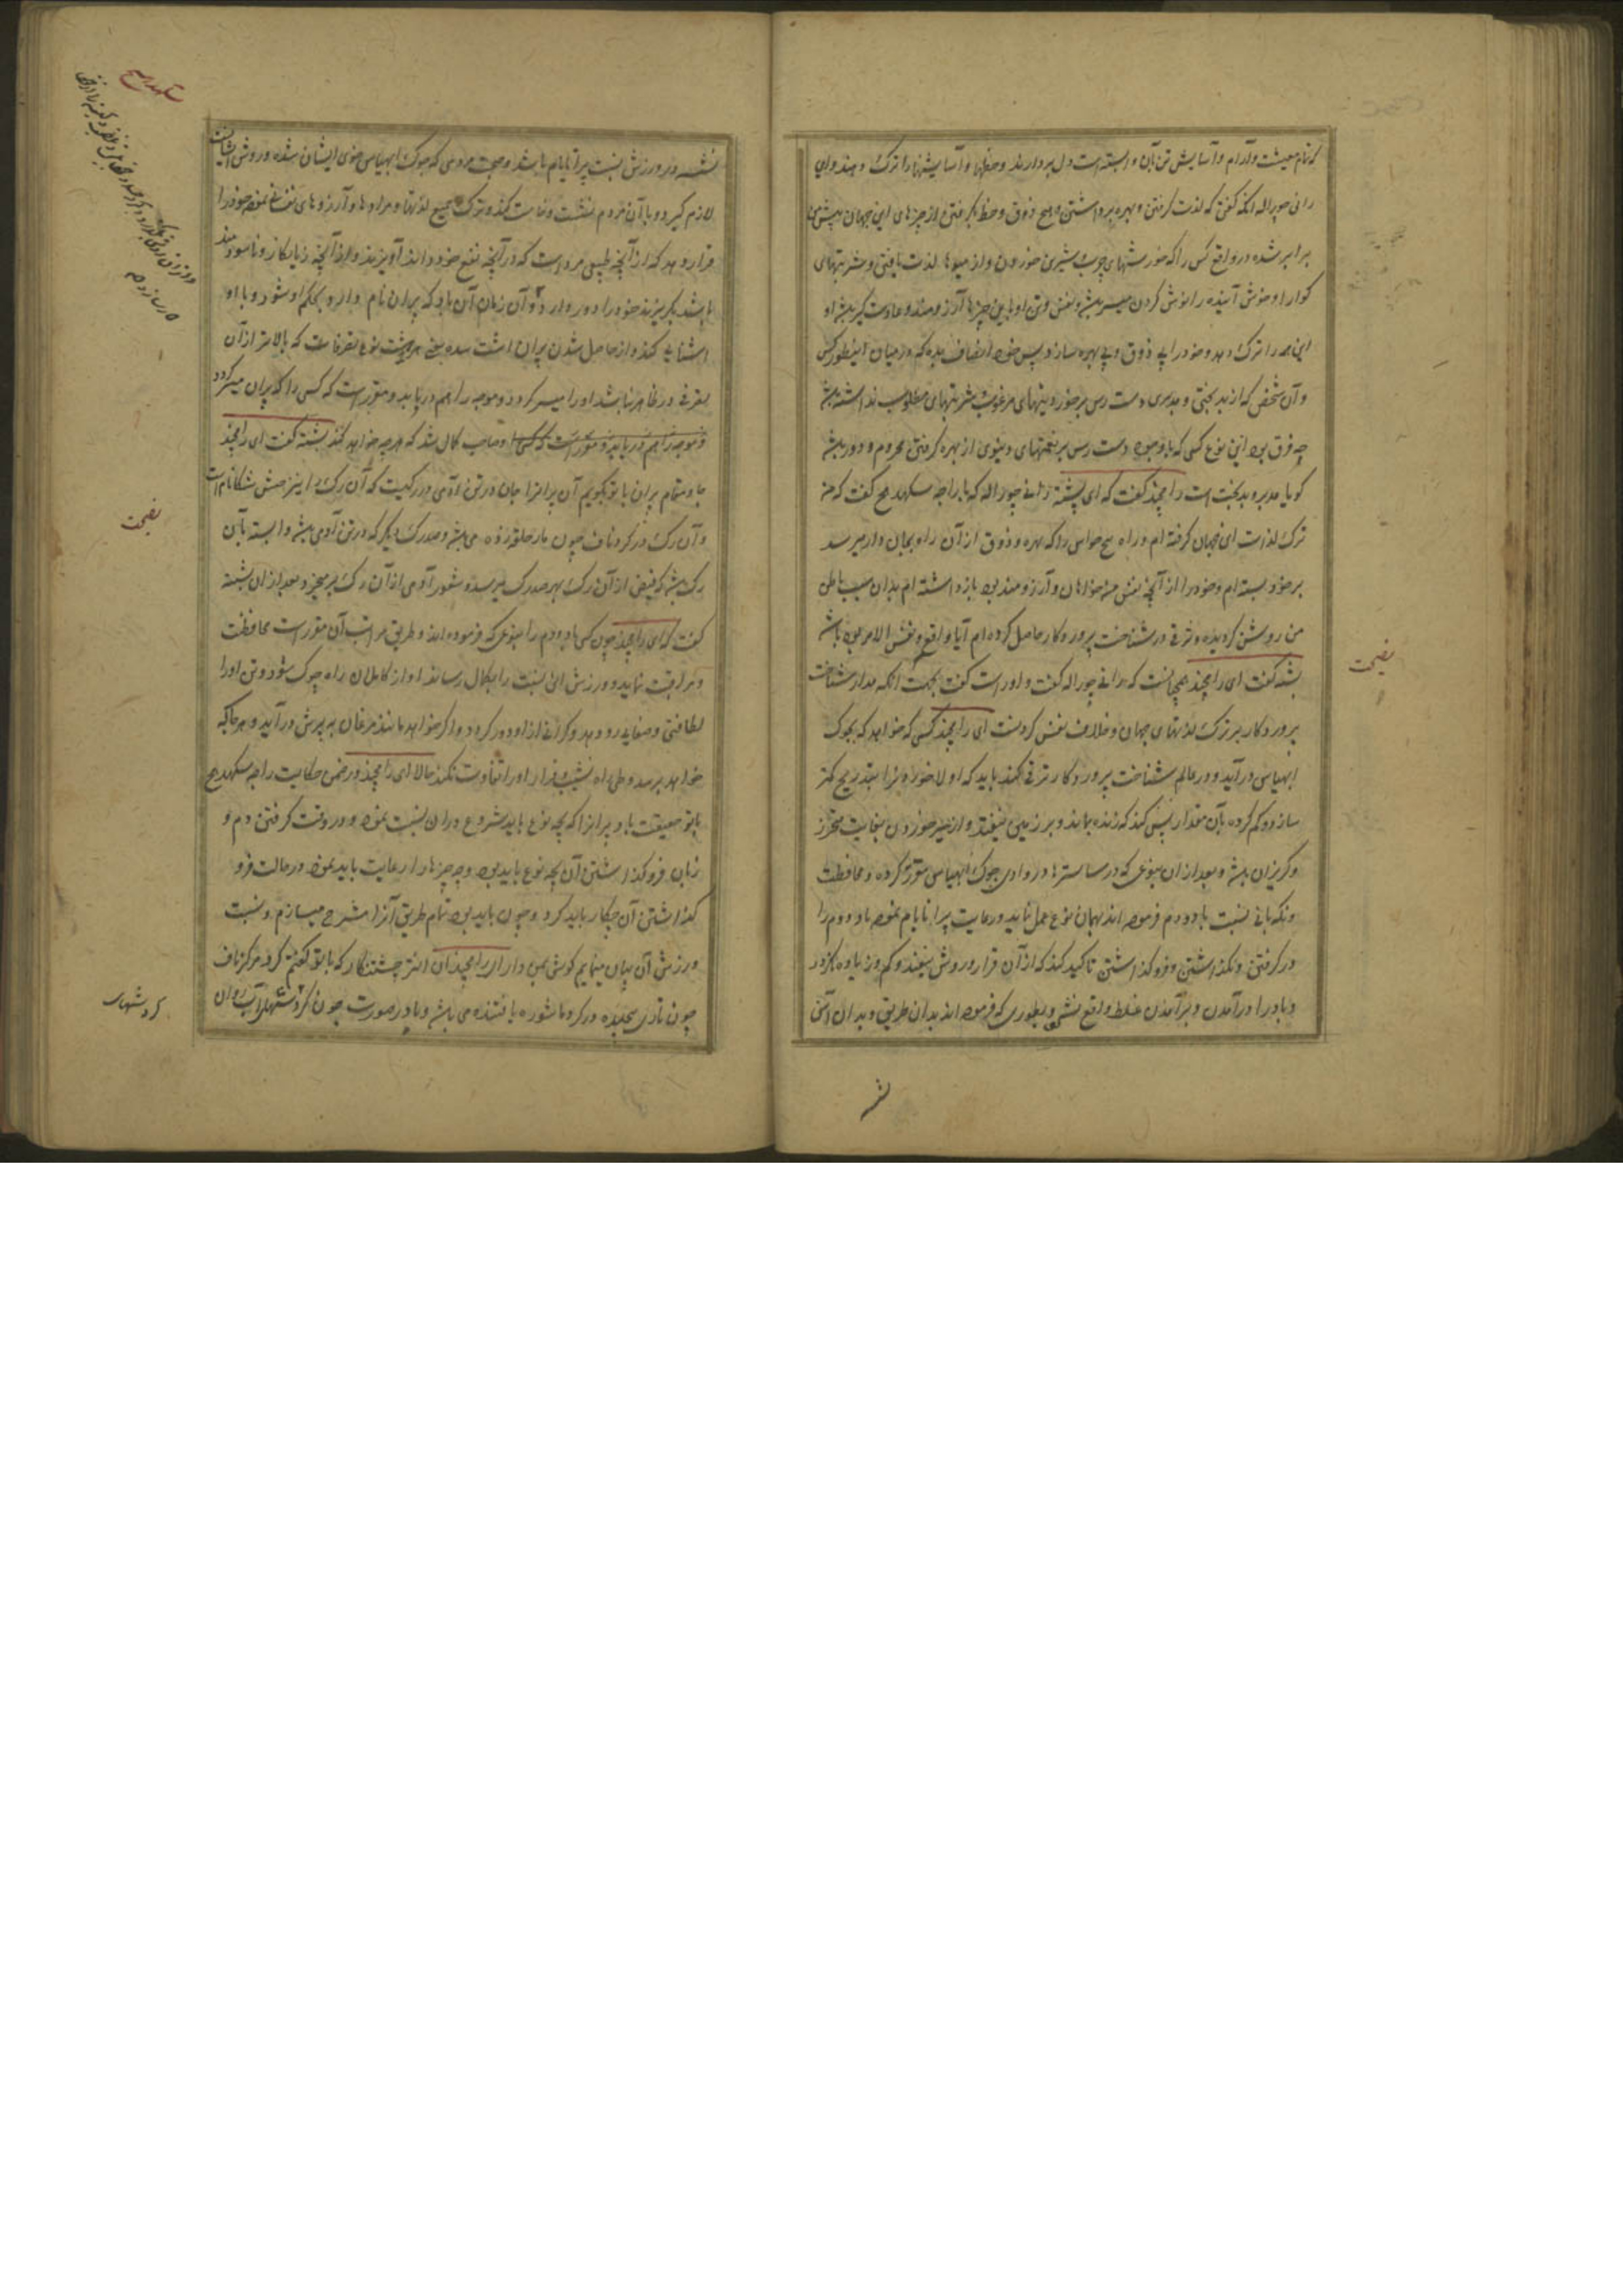 که تمام معیشت و آرام و آسایش تن بآن وابسته است دل بردارند و حظها و آسایشها را ترک دهند و رای
رانی چوراله آنکه گفتی که لذت گرفتن و بهره برداشتن و هیچ ذوق و حظ نگرفتن از چیزهای این جهان پیش من
برابر شده در واقع کس را که خورشتهای چرب و شیرین خوردن و از میوها لذت یافتن و شربتهای
گوارا و خوش آینده را نوش کردن میسر باشد و نفس و تن او باین چیزها آرزومند و عادت گیر باشد او
این همه را ترک دهد و خود را بی ذوق و بی بهره سازد پس خود انصاف بده که در میان اینطور کس
و آن شخصی که از بدبختی و مدبری دست رس بر خوردنیهای مرغوب و شربتهای مطلوب نداشته باشد
چه فرق بود این نوع کسی که باوجود دست رس بر نعمتهای دنیوی از بهره گرفتن محروم و دور باشد
گویا مدبر و بدبخت است رامچند گفت که ای بشسته رانی چوراله که با راجه سکهدهج گفت که من
ترک لذت این جهان گرفته ام و راه پنج حواس را که بهره و ذوق از آن راه بجان وا میرسد
بر خود بسته ام و خود را از آنچه نفس من خواهان و آرزومند بود باز داشته ام بدان سبب باطن
من روشن گردیده و ترقی در شناخت پروردگار حاصل کرده ام آیا واقع و نفس الامر بوده باشد
بشسته گفت ای رامچند همچنانست که رانی چوراله گفت و او راست گفت بجهت آنکه مدار شناخت
پروردگار بر ترک لذتهای جهان و خلاف نفس کردنست ای رامچند کسی که خواهد که بجوگ
ابهیاس درآید و در عالم شناخت پروردگار ترقی کند باید که اولا خوراک را بتدریج کمتر
سازد و کم کرده بآن مقدار بس کند که زنده بماند و بر زمین نیفتد و از سیر خوردن بغایت محترز
و گریزان باشد و بعد از آن بنوعی که در ساسترها در وادی جوگ ابهیاس مقرر کرده و محافظت
و نگهبانی نسبت باد و دم فرموده اند بهمان نوع عمل نماید و رعایت پرانایام نموده باد و دم را
در گرفتن و نگذاشتن و فروگذاشتن تاکید کند که از آن قرار و روش نیفتد و کم و زیاده نگردد
و باد را درآمدن و برآمدن غلط واقع نشود و بطوری که فرموده اند بدان طریق و بدان آئین
نصیحت
نشسته در ورزش نسبت پرانایام باشد و صحبت مردمی که جوگ ابهیاس خوی ایشان شده و روش ایشانست
لازم گیرد و با آن مردم نشست و خاست کند و ترک جمیع لذتها و مرادها و آرزوهای نفسانی نموده خود را
قرار دهد که از آنچه طبیعی مرد است که در آنچه نفع خود داند آویزند و از آنچه زیانکار و ناسودمند
باشد بگریزند خود را دور دارد و آن زمان آن باد که پران نام دارد بحکم او شود و با او
آشنایی کند و از حاصل شدن پران اشت سده یعنی هشت نوع تصرفات که بالاتر از آن
تصرفی در ظاهر نباشد او را میسر گردد و موجه را هم دریابد و مقرر است که کسی را که پران میسر گردد
و موجه را هم دریابد و مقرر است که کسی او صاحب کمال شد که هر چه خواهد کند بشسته گفت ای رامچند
جا و مقام پران با تو بگویم آن پران را جان در تن آدمی در رگیست که آن رگ را اینترهشش شکا نام است
و آن رگ در گرد ناف چون مار حلقه زده می باشد و صد رگ دیگر که در تن آدمی باشد وابسته بآن
رگ باشد که فیض از آن رگ بهر صد رگ میرسد و شعور آدمی از آن رگ برمیخیزد بعد از آن بشسته
گفت که ای رامچند چون کسی باد و دم را بنوعی که فرموده اند و طریق مراتب آن مقرر است محافظت
و مراقبت نماید و ورزش این نسبت را بکمال رساند او از کاملان راه جوگ شود و تن او را
لطافتی و صفایی رو دهد و گرانی از او دور گردد و اگر خواهد مانند مرغان به پرش درآید و هر جا که
خواهد برسد و طی راه نشیب و فراز او را تفاوت نکند حالا ای رامچند در ضمن حکایت راجه سکهدهج
با تو حقیقت باد پران را که بچه نوع باید شروع در آن نسبت نمود و در وقت گرفتن دم و
زمان فروگذاشتن آن بچه نوع باید بود و چه چیزها را رعایت باید نمود و در حالت فرو
گذاشتن آن چکار باید کرد و چون باید بود تمام طریق آنرا مشرح میسازم و نسبت
ورزش آن بیان مینمایم گوش بمن دار ای رامچند آن اینتر چشتنکار که با تو گفتم گرد مرکز ناف
چون تاری بحلیده در گرد ماشوره بافننده می باشد و باد در صورت چون گردشهای آب روان
سکهدهج
نصیحت
گردشهای